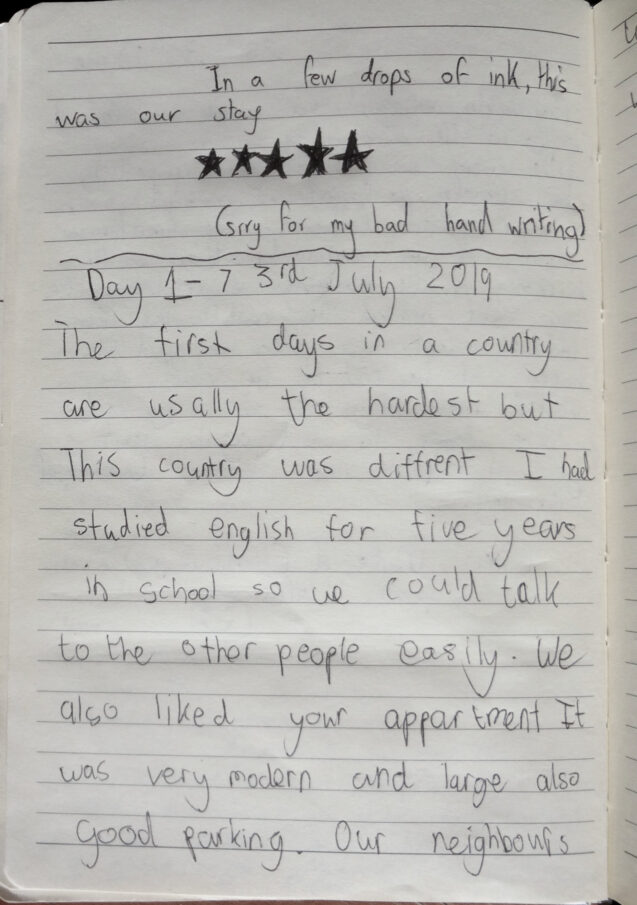 In a few drops of ink, this
was our stay
★★★★★
(srry for my bad hand writing)
Day 1-7 3rd July 2019
The first days in a country
are usally the hardest but
This country was diffrent I had
studied english for five years
in school so we could talk
to the other people easily. We
also liked your appartment It
was very modern and large also
Good parking. Our neighbours